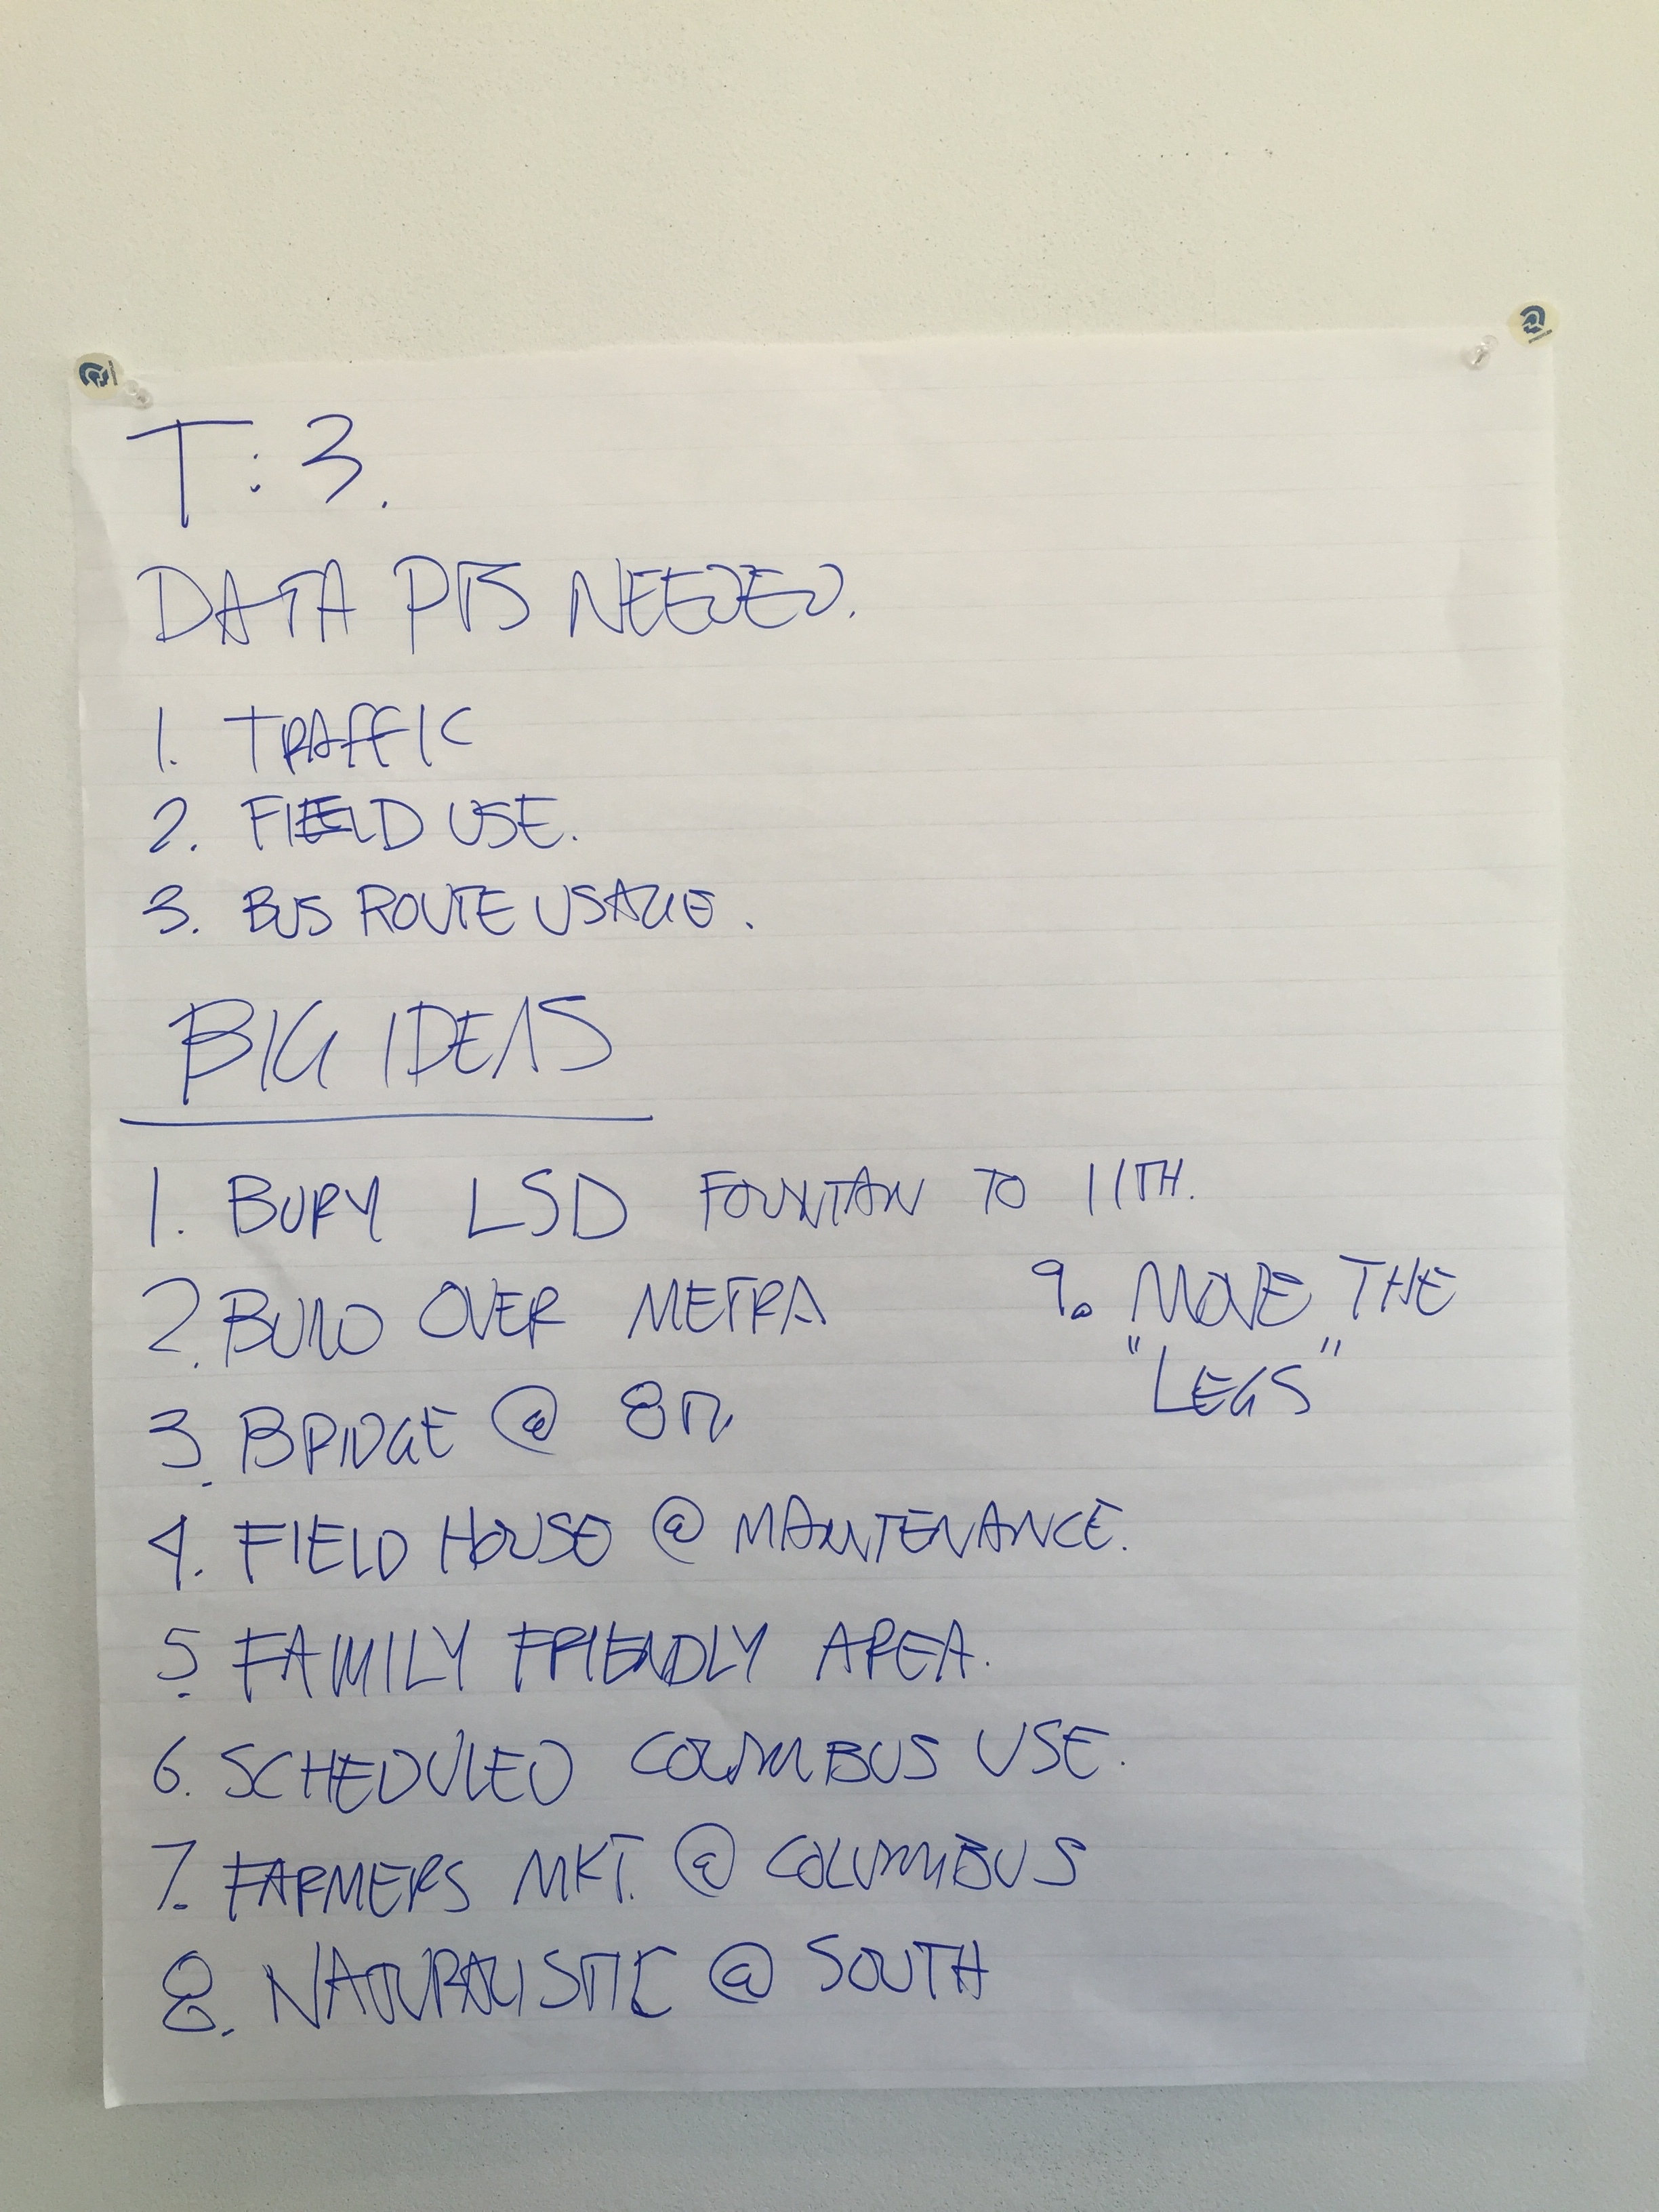 T: 3.
DATA PTS NEEDED.
1. TRAFFIC
2. FIELD USE.
3. BUS ROUTE USAGE.
BIG IDEAS
1. BURY LSD FOUNTAIN TO 11TH.
2. BUILD OVER METRA
3. BRIDGE @ 8TH
4. FIELD HOUSE @ MAINTENANCE.
5. FAMILY FRIENDLY AREA.
6. SCHEDULED COLUMBUS USE.
7. FARMERS MKT. @ COLUMBUS
8. NATURALISTIC @ SOUTH
9. MOVE THE
"LEGS"